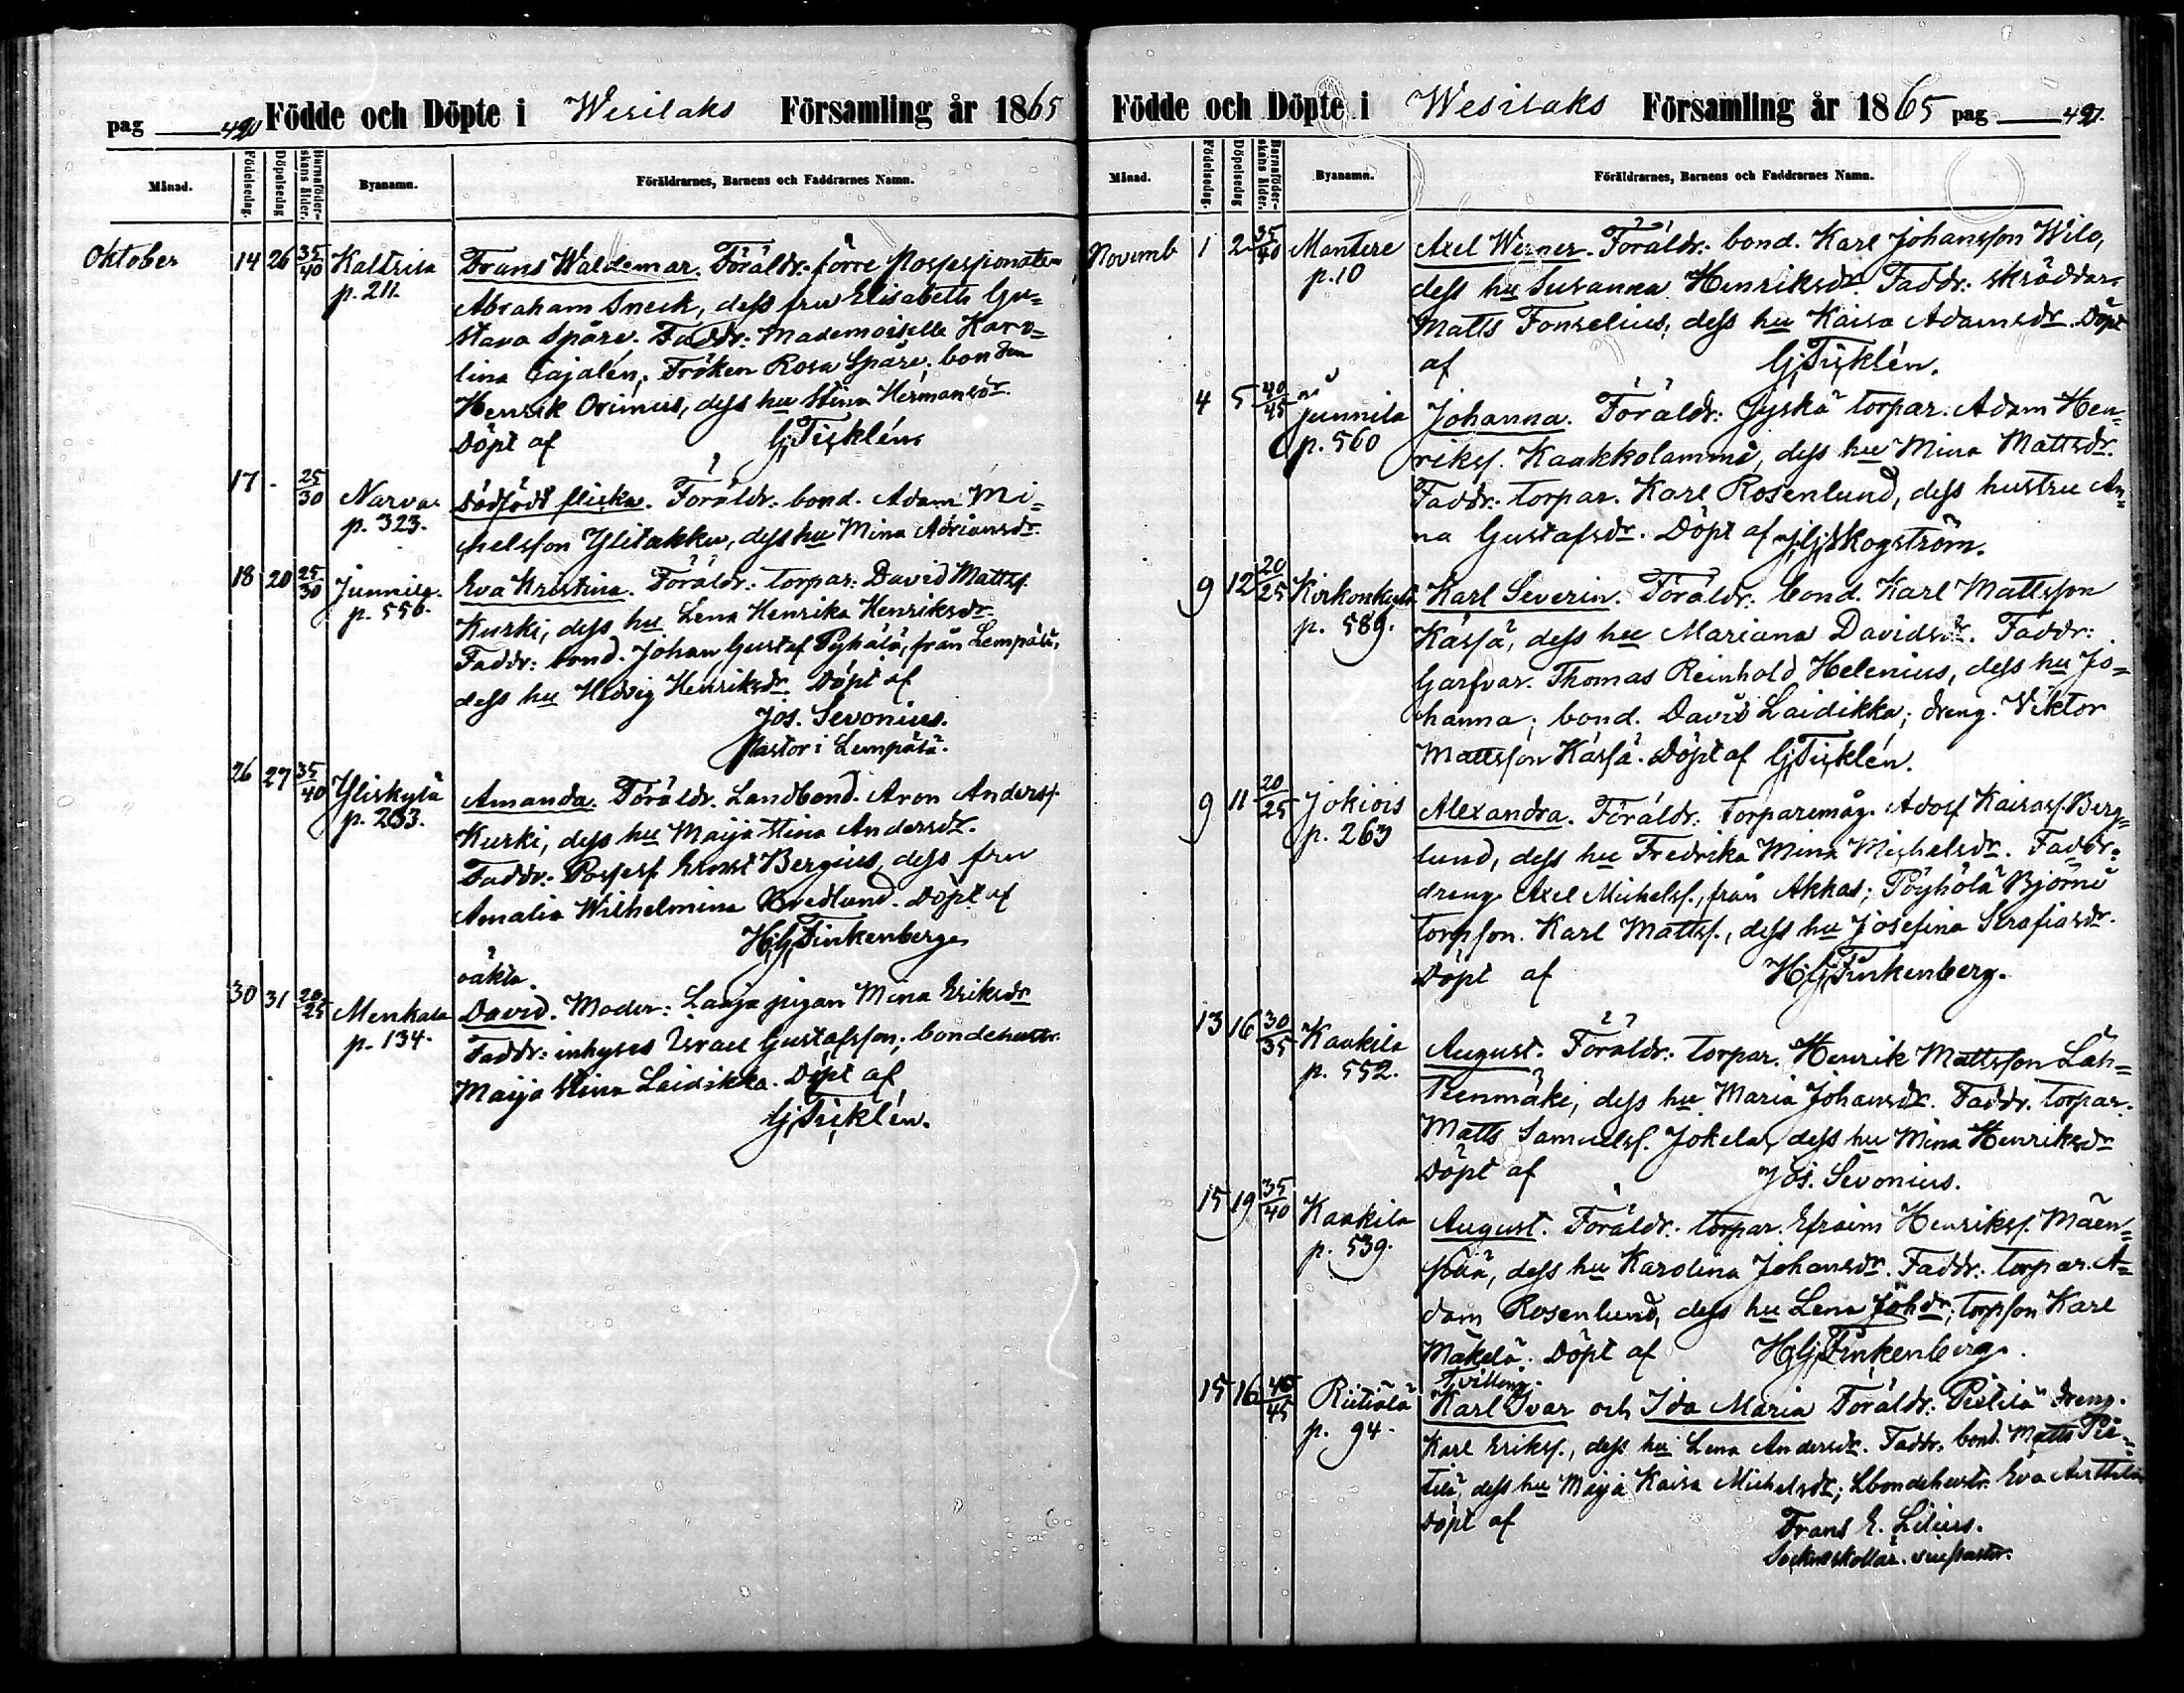 pag 490 Födde och Döpte i Wesilaks Församling år 1865
Månad. Födelsedag. Döpelsedag Barnaföderskans ålder. Byanamn. Föräldrarnes, Barnens och Faddrarnes Namn.
Oktober 14 26 35/40 Kaltrisa Frans Waldemar. Föräldr: förre Possessionaten
p. 211. Abraham Sneck, dess fru Elisabeth Gu=
stava Spåre. Faddr: Mademoiselle Karo=
lina Cajalén; Fröken Rosa Spåre; bonden
Henrik Orimus, dess hu Stina Hermansdr.
Döpt af G. Ticklén.
17 - 25/30 Narva Dödfödt flicka. Föräldr: bond. Adam Mi=
p. 323. chelsson Ylitakku, dess hu Mina Adriansdr.
18 20 25/30 Junnila Eva Kristina. Föräldr: torpar. David Mattss.
p. 556. Kurki, dess hu Lena Henrika Henriksdr.
Faddr: bond. Johan Gustaf Pyhälä, från Lempälä,
dess hu Hedvig Henriksdr. Döpt af
Jos. Sevonius.
Pastor i Lempälä.
26 27 35/40 Yliskylä Amanda. Föräldr. Landbond. Aron Anderss.
p. 233. Kurki, dess hu Maija Stina Andersdr.
Faddr: Possess. Ernst Bergius, dess fru
Amalia Wilhelmina Bredlund. Döpt af
H. G. Finkenberg.
oäkta.
30 31 20/25 Menkala David. Moder: Laaja pigan Mina Eriksdr
p. 134. Faddr: inhyses Israel Gustafsson; bondehustr.
Maija Stina Laidikka. Döpt af
G. Ticklén.
Födde och Döpte i Wesilaks Församling år 1865 pag 491.
Månad. Födelsedag. Döpelsedag Barnaföderskans ålder. Byanamn. Föräldrarnes, Barnens och Faddrarnes Namn.
Novemb 1 2 35/40 Mantere Axel Werner. Föräldr: bond. Karl Johansson Wilo,
p. 10 dess hu Susanna Henriksdr. Faddr: skräddar.
Matts Fonselius, dess hu Kaisa Adamsdr. Döpt
af G. Ticklén.
4 5 40/45 Junnila Johanna. Föräldr: Jyskä torpar. Adam Hen=
p. 560 rikss. Kaakkolammi, dess hu Mina Mattsdr.
Faddr: torpar. Karl Rosenlund, dess hustru An=
na Gustafsdr. Döpt af J. G. Skogström.
9 12 20/25 Kirkonkylä Karl Severin. Föräldr. bond. Karl Mattsson
p. 589. Kässä, dess hu Mariana Davidsdr. Faddr:
Garfvar. Thomas Reinhold Helenius, dess hu Jo=
hanna; bond. David Laidikka; dreng. Viktor
Mattsson Kässä. Döpt af G. Ticklén.
9 11 20/25 Jokiois Alexandra. Föräldr: torparemåg. Adolf Kaisass. Berg=
p. 263 lund, dess hu Fredrika Mina Michelsdr. Faddr:
dreng Axel Michelss., från Akkas; Pöyhölä Björni
torpson. Karl Mattss., dess hu Josefina Serafiasdr.
Döpt af H. G. Finkenberg.
13 16 30/35 Kaakila August. Föräldr: torpar. Henrik Mattsson Läh=
p. 552. teenmäki, dess hu Maria Johansdr. Faddr. torpar.
Matts Samuelss. Jokela, dess hu Mina Henriksdr
Döpt af Jos. Sevonius.
15 19 35/40 Kaakila August. Föräldr: torpar. Efraim Henrikss. Mäen=
p. 539. pää, dess hu Karolina Johansdr. Faddr: torpar. A=
dam Rosenlund, dess hu Lena Johdr; torpson Karl
Mäkelä. Döpt af H. G. Finkenberg.
Tvilling.
15 16 40/45 Riitiälä Karl Ivar och Ida Maria Föräldr: Pietilä dreng.
p. 94. Karl Erikss., dess hu Lena Andersdr. Faddr. bond. Matts Pie=
tilä, dess hu Maija Kaisa Michelsdr; Lbondehustr. Eva Anttila
Döpt af Frans E. Lilius.
Socknskollär. vicepastor.